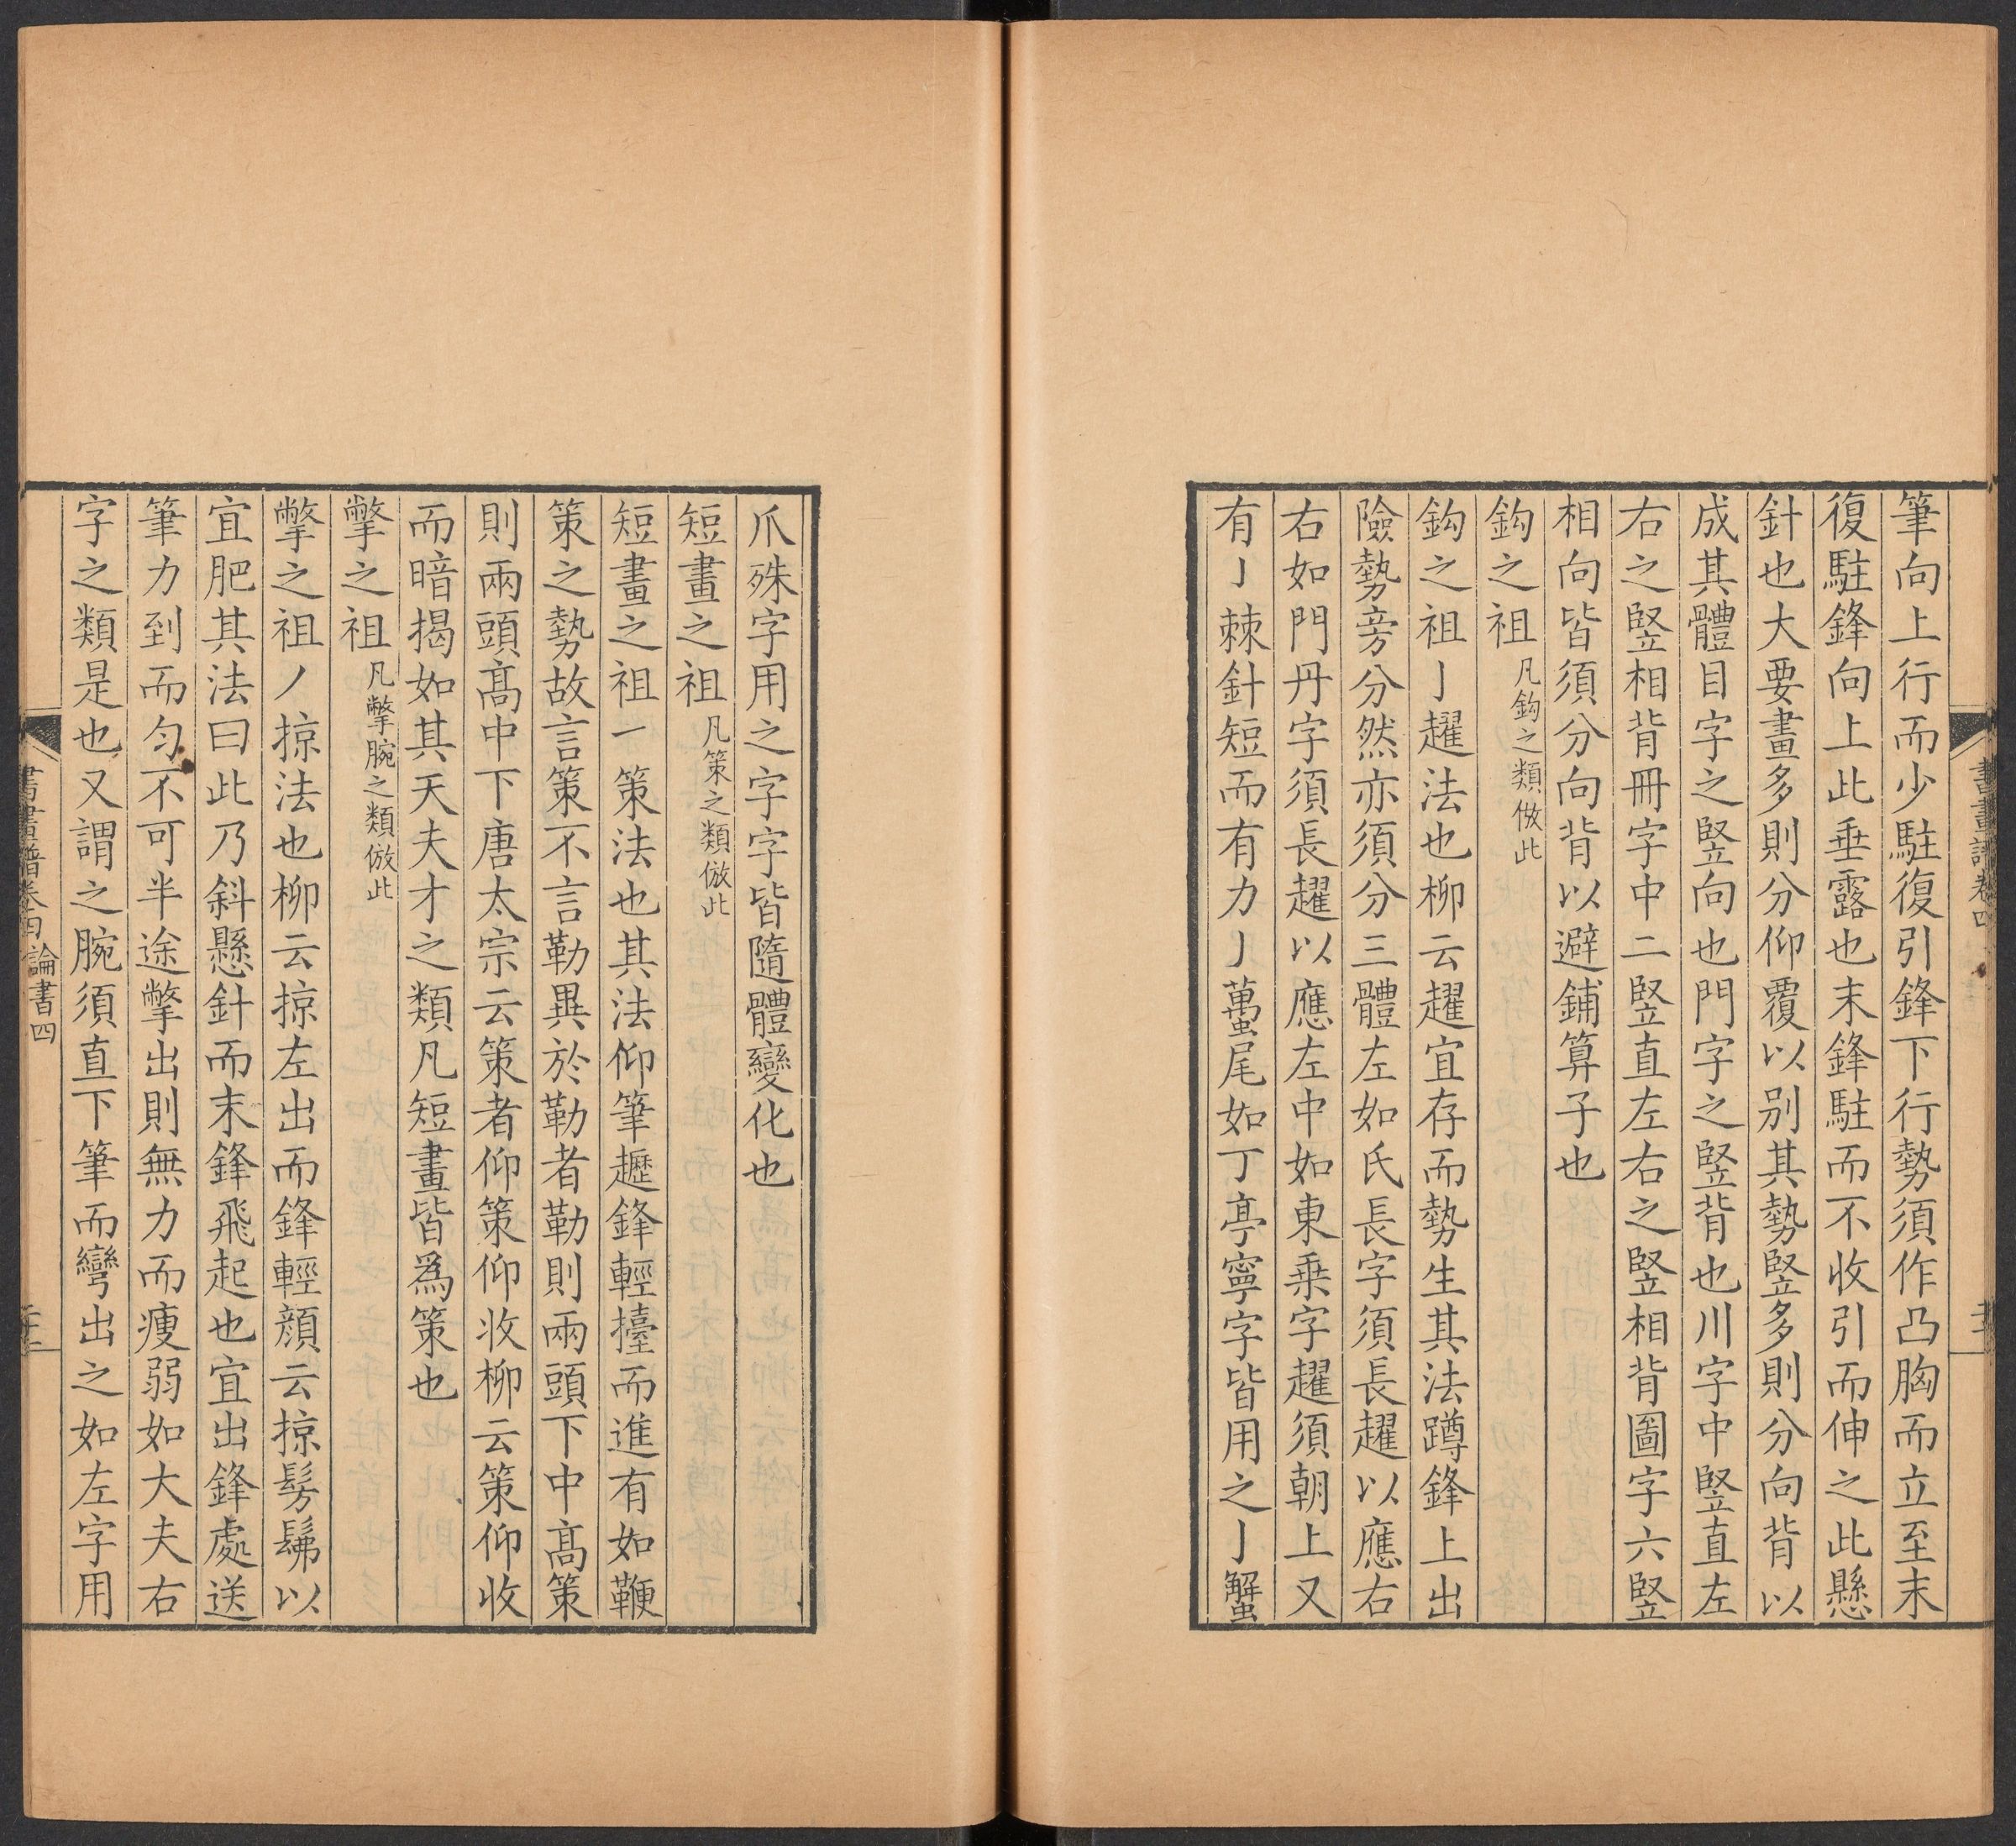 筆向上行而少駐復引鋒下行勢須作凸胸而立至末
復駐鋒向上此垂露也末鋒駐而不收引而伸之此懸
針也大要畫多則分仰覆以别其勢竪多則分向背以
成其體目字之竪向也門字之竪背也川字中竪直左
右之竪相背冊字中二竪直左右之竪相背圖字六竪
相向皆須分向背以避鋪算子也
鈎之祖凡鈎之類倣此
鈎之祖亅趯法也柳云趯宜存而勢生其法蹲鋒上出
險勢旁分然亦須分三體左如氏長字須長趯以應右
右如門丹字須長趯以應左中如東乗字趯須朝上又
有亅棘針短而有力亅蠆尾如丁亭寧字皆用之亅蟹
爪殊字用之字字皆隨體變化也
短畫之祖凡策之類倣此
短畫之祖㇀策法也其法仰筆趯鋒輕擡而進有如鞭
策之勢故言策不言勒異於勒者勒則兩頭下中髙策
則兩頭髙中下唐太宗云策者仰策仰收柳云策仰收
而暗揭如其天夫才之類凡短畫皆爲策也
撆之祖凡撆腕之類倣此
撆之祖丿掠法也柳云掠左出而鋒輕顔云掠髣髴以
宜肥其法曰此乃斜懸針而末鋒飛起也宜出鋒處送
筆力到而匀不可半途撆出則無力而痩弱如大夫右
字之類是也又謂之腕須直下筆而彎出之如左字用
書畫譜卷四 論書四